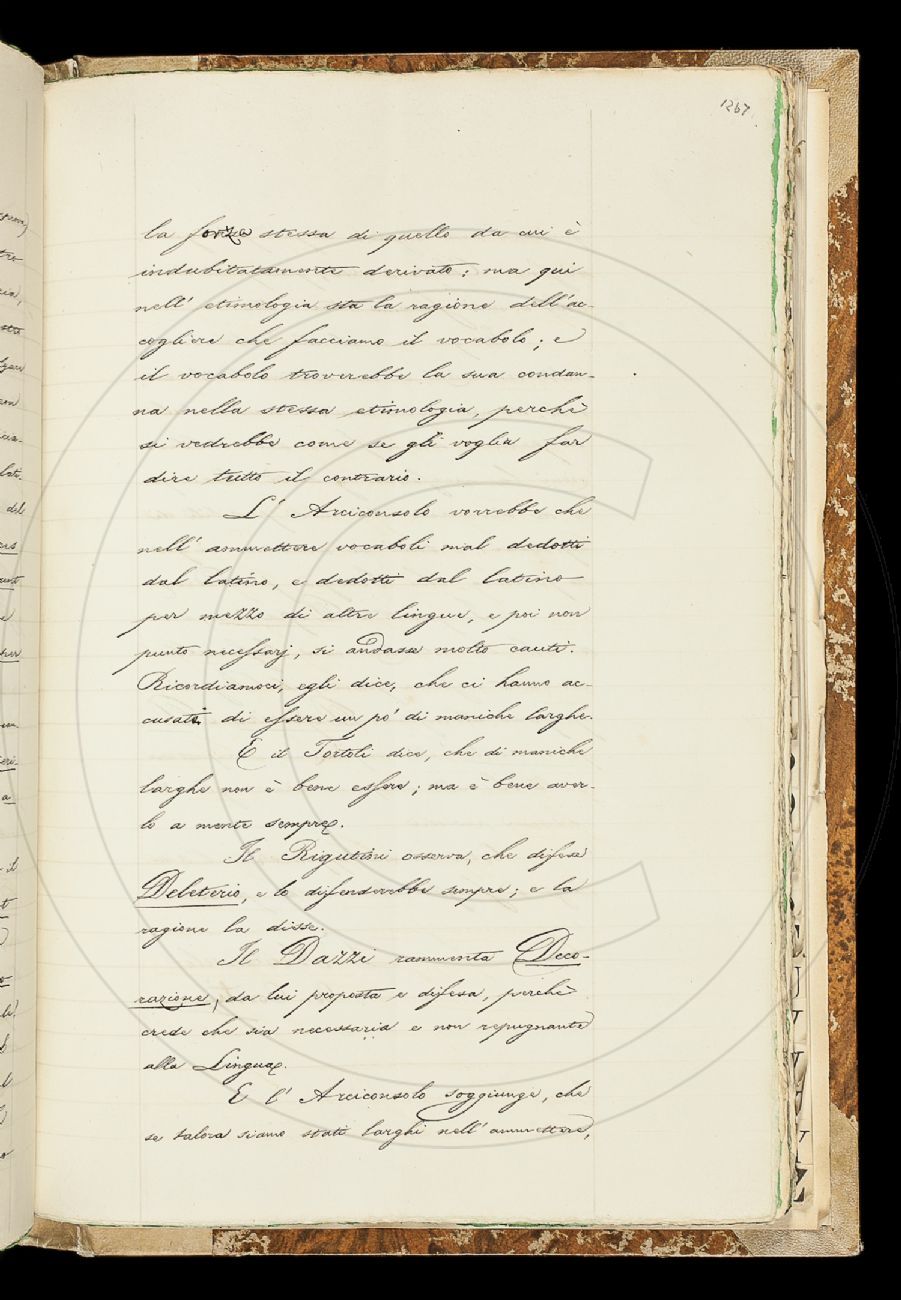 1267
la forza stessa di quello da cui è
indubitatamente derivato: ma qui
nell' etimologia sta la ragione dell'ac-
cogliere che facciamo il vocabolo; e
il vocabolo troverebbe la sua condan-
na nella stessa etimologia, perchè
si vedrebbe come se gli voglia far
dire tutto il contrario.
L' Arciconsolo vorrebbe che
nell' ammettere vocaboli mal dedotti
dal latino, e dedotti dal latino
per mezzo di altre lingue, e poi non
punto necessarj, si andasse molto cauti.
Ricordiamoci, egli dice, che ci hanno ac-
cusati di essere un po' di maniche larghe.
E il Tortoli dice, che di maniche
larghe non è bene essere; ma è bene aver-
lo a mente sempre.
Il Rigutini osserva, che difese
Deleterio, e lo difenderebbe sempre; e la
ragione la disse.
Il Dazzi rammenta Deco-
razione, da lui proposta e difesa, perchè
crede che sia necessaria e non repugnante
alla Lingua.
E l' Arciconsolo soggiunge, che
se talora siamo stati larghi nell' ammettere,